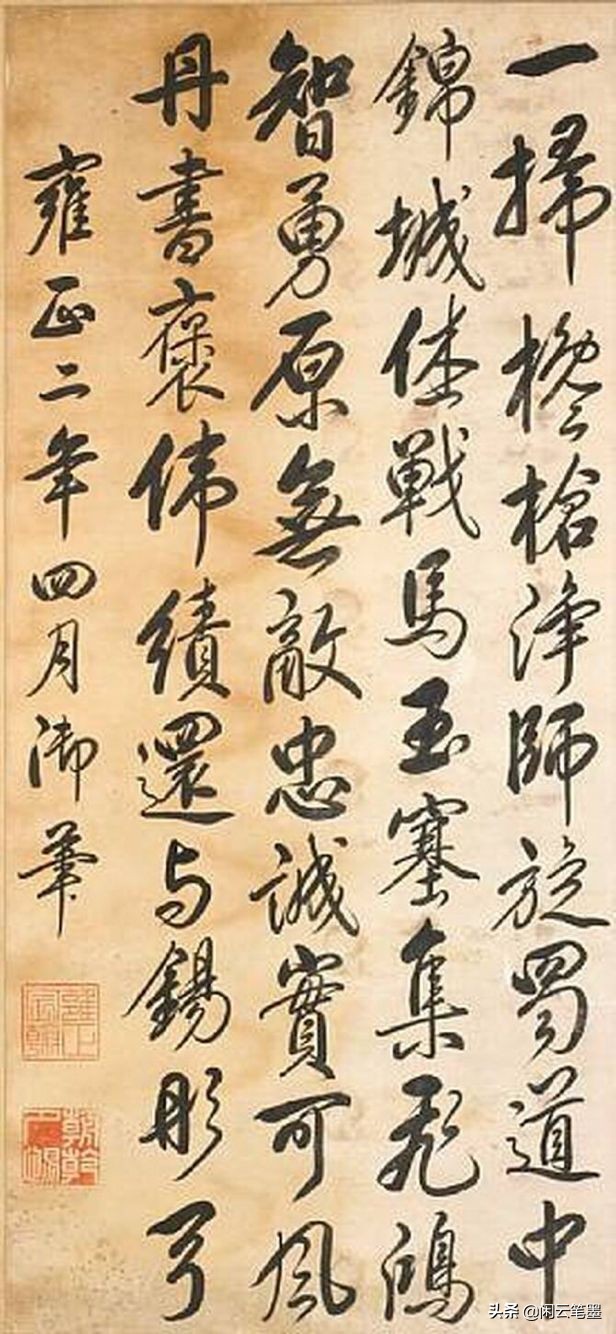 一掃欃槍淨師旋蜀道中
錦城休戰馬玉塞集飛鴻
智勇原無敵忠誠實可風
丹書褒偉績還与錫彤弓
雍正二年四月御筆
雍正宸翰
朝乾夕惕
头条 @闲云笔墨